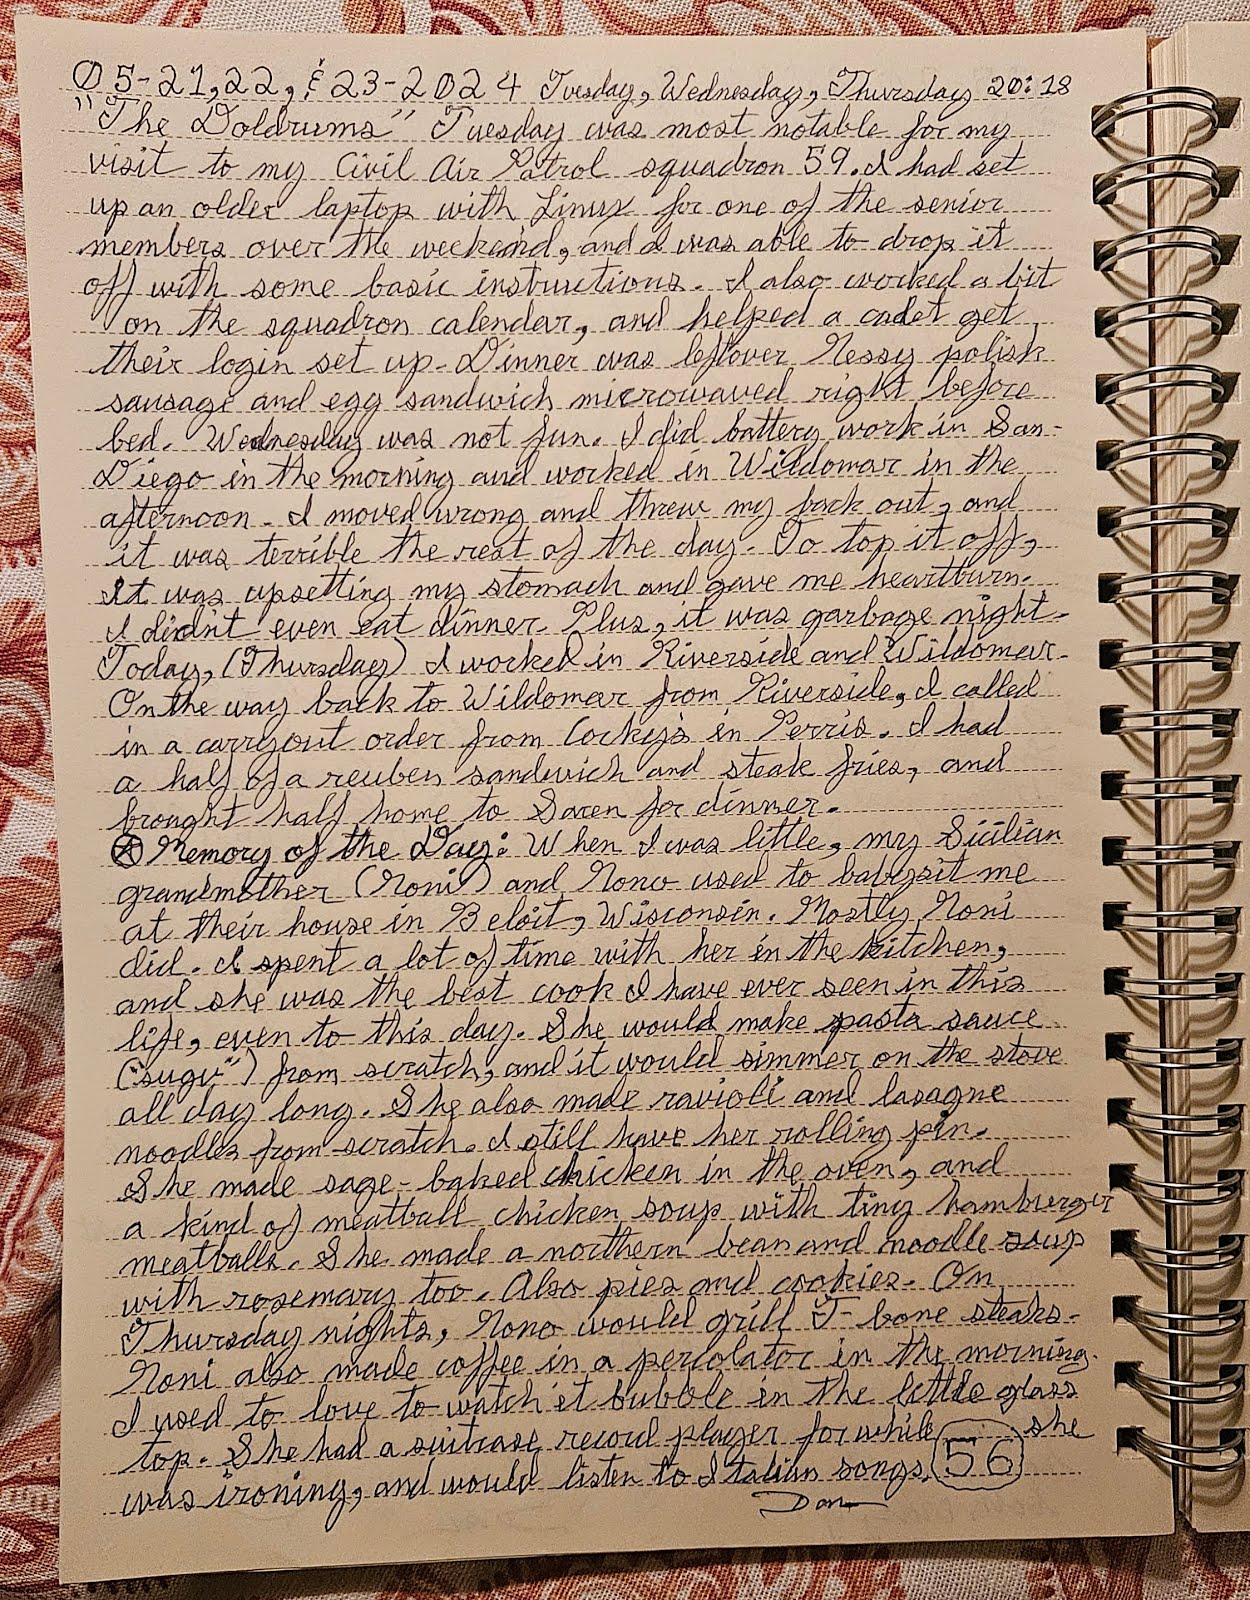 05-21,22, & 23-2024 Tuesday, Wednesday, Thursday 20:18
"The Doldrums" Tuesday was most notable for my
visit to my Civil Air Patrol squadron 59. I had set
up an older laptop with Linux for one of the senior
members over the weekend, and I was able to drop it
off with some basic instructions. I also worked a bit
on the squadron calendar, and helped a cadet get
their login set up. Dinner was leftover Nessy polish
sausage and egg sandwich microwaved right before
bed. Wednesday was not fun. I did battery work in San-
Diego in the morning and worked in Wildomar in the
afternoon. I moved wrong and threw my back out, and
it was terrible the rest of the day. To top it off,
it was upsetting my stomach and gave me heartburn.
I didn't even eat dinner. Plus, it was garbage night.
Today, (Thursday) I worked in Riverside and Wildomar.
On the way back to Wildomar from Riverside, I called
in a carryout order from Corky's in Perris. I had
a half of a reuben sandwich and steak fries, and
brought half home to Saren for dinner.
Memory of the Day: When I was little, my Sicilian
grandmother (Noni) and Nono used to babysit me
at their house in Beloit, Wisconsin. Mostly Noni
did. I spent a lot of time with her in the kitchen,
and she was the best cook I have ever seen in this
life, even to this day. She would make pasta sauce
("sugu") from scratch, and it would simmer on the stove
all day long. She also made ravioli and lasagne
noodles from scratch. I still have her rolling pin.
She made sage-baked chicken in the oven, and
a kind of meatball chicken soup with tiny hamburger
meatballs. She made a northern bean and noodle soup
with rosemary too. Also pies and cookies. On
Thursday nights, Nono would grill T-bone steaks.
Noni also made coffee in a percolator in the morning.
I used to love to watch it bubble in the little glass
top. She had a suitcase record player for while she
was ironing, and would listen to Italian songs. 56
Dan